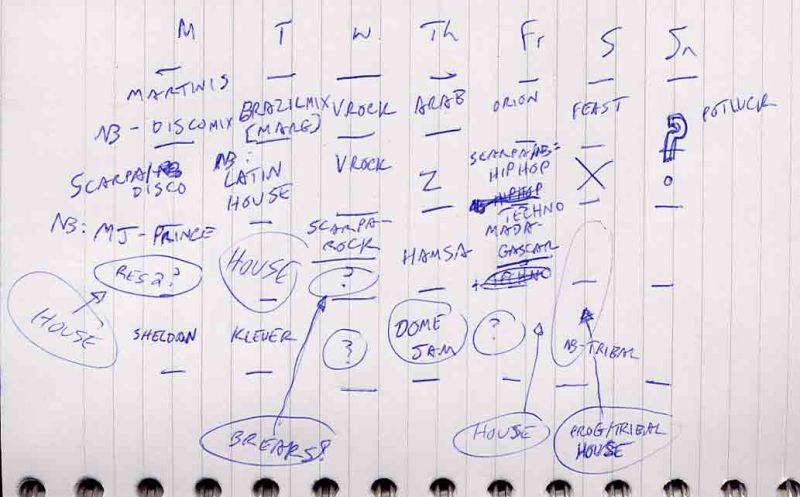 M T W Th Fr S Sn
MARTINIS
BRAZILMIX VROCK ARAB ORION FEAST POTLUCK
NB - DISCOMIX [MARG]
SCARPA/NB NB: VROCK Z SCARPA/NB= X ?
DISCO LATIN HIPHOP
HOUSE HIPHOP
TECHNO
NB: MJ-PRINCE SCARPA- MADA-
ROCK HAMSA GASCAR
RES2? HOUSE ? TECHNO
HOUSE SHELDON KLEVER ? DOME ? NB-TRIBAL
JAM
BREAKS? HOUSE PROG/TRIBAL
HOUSE